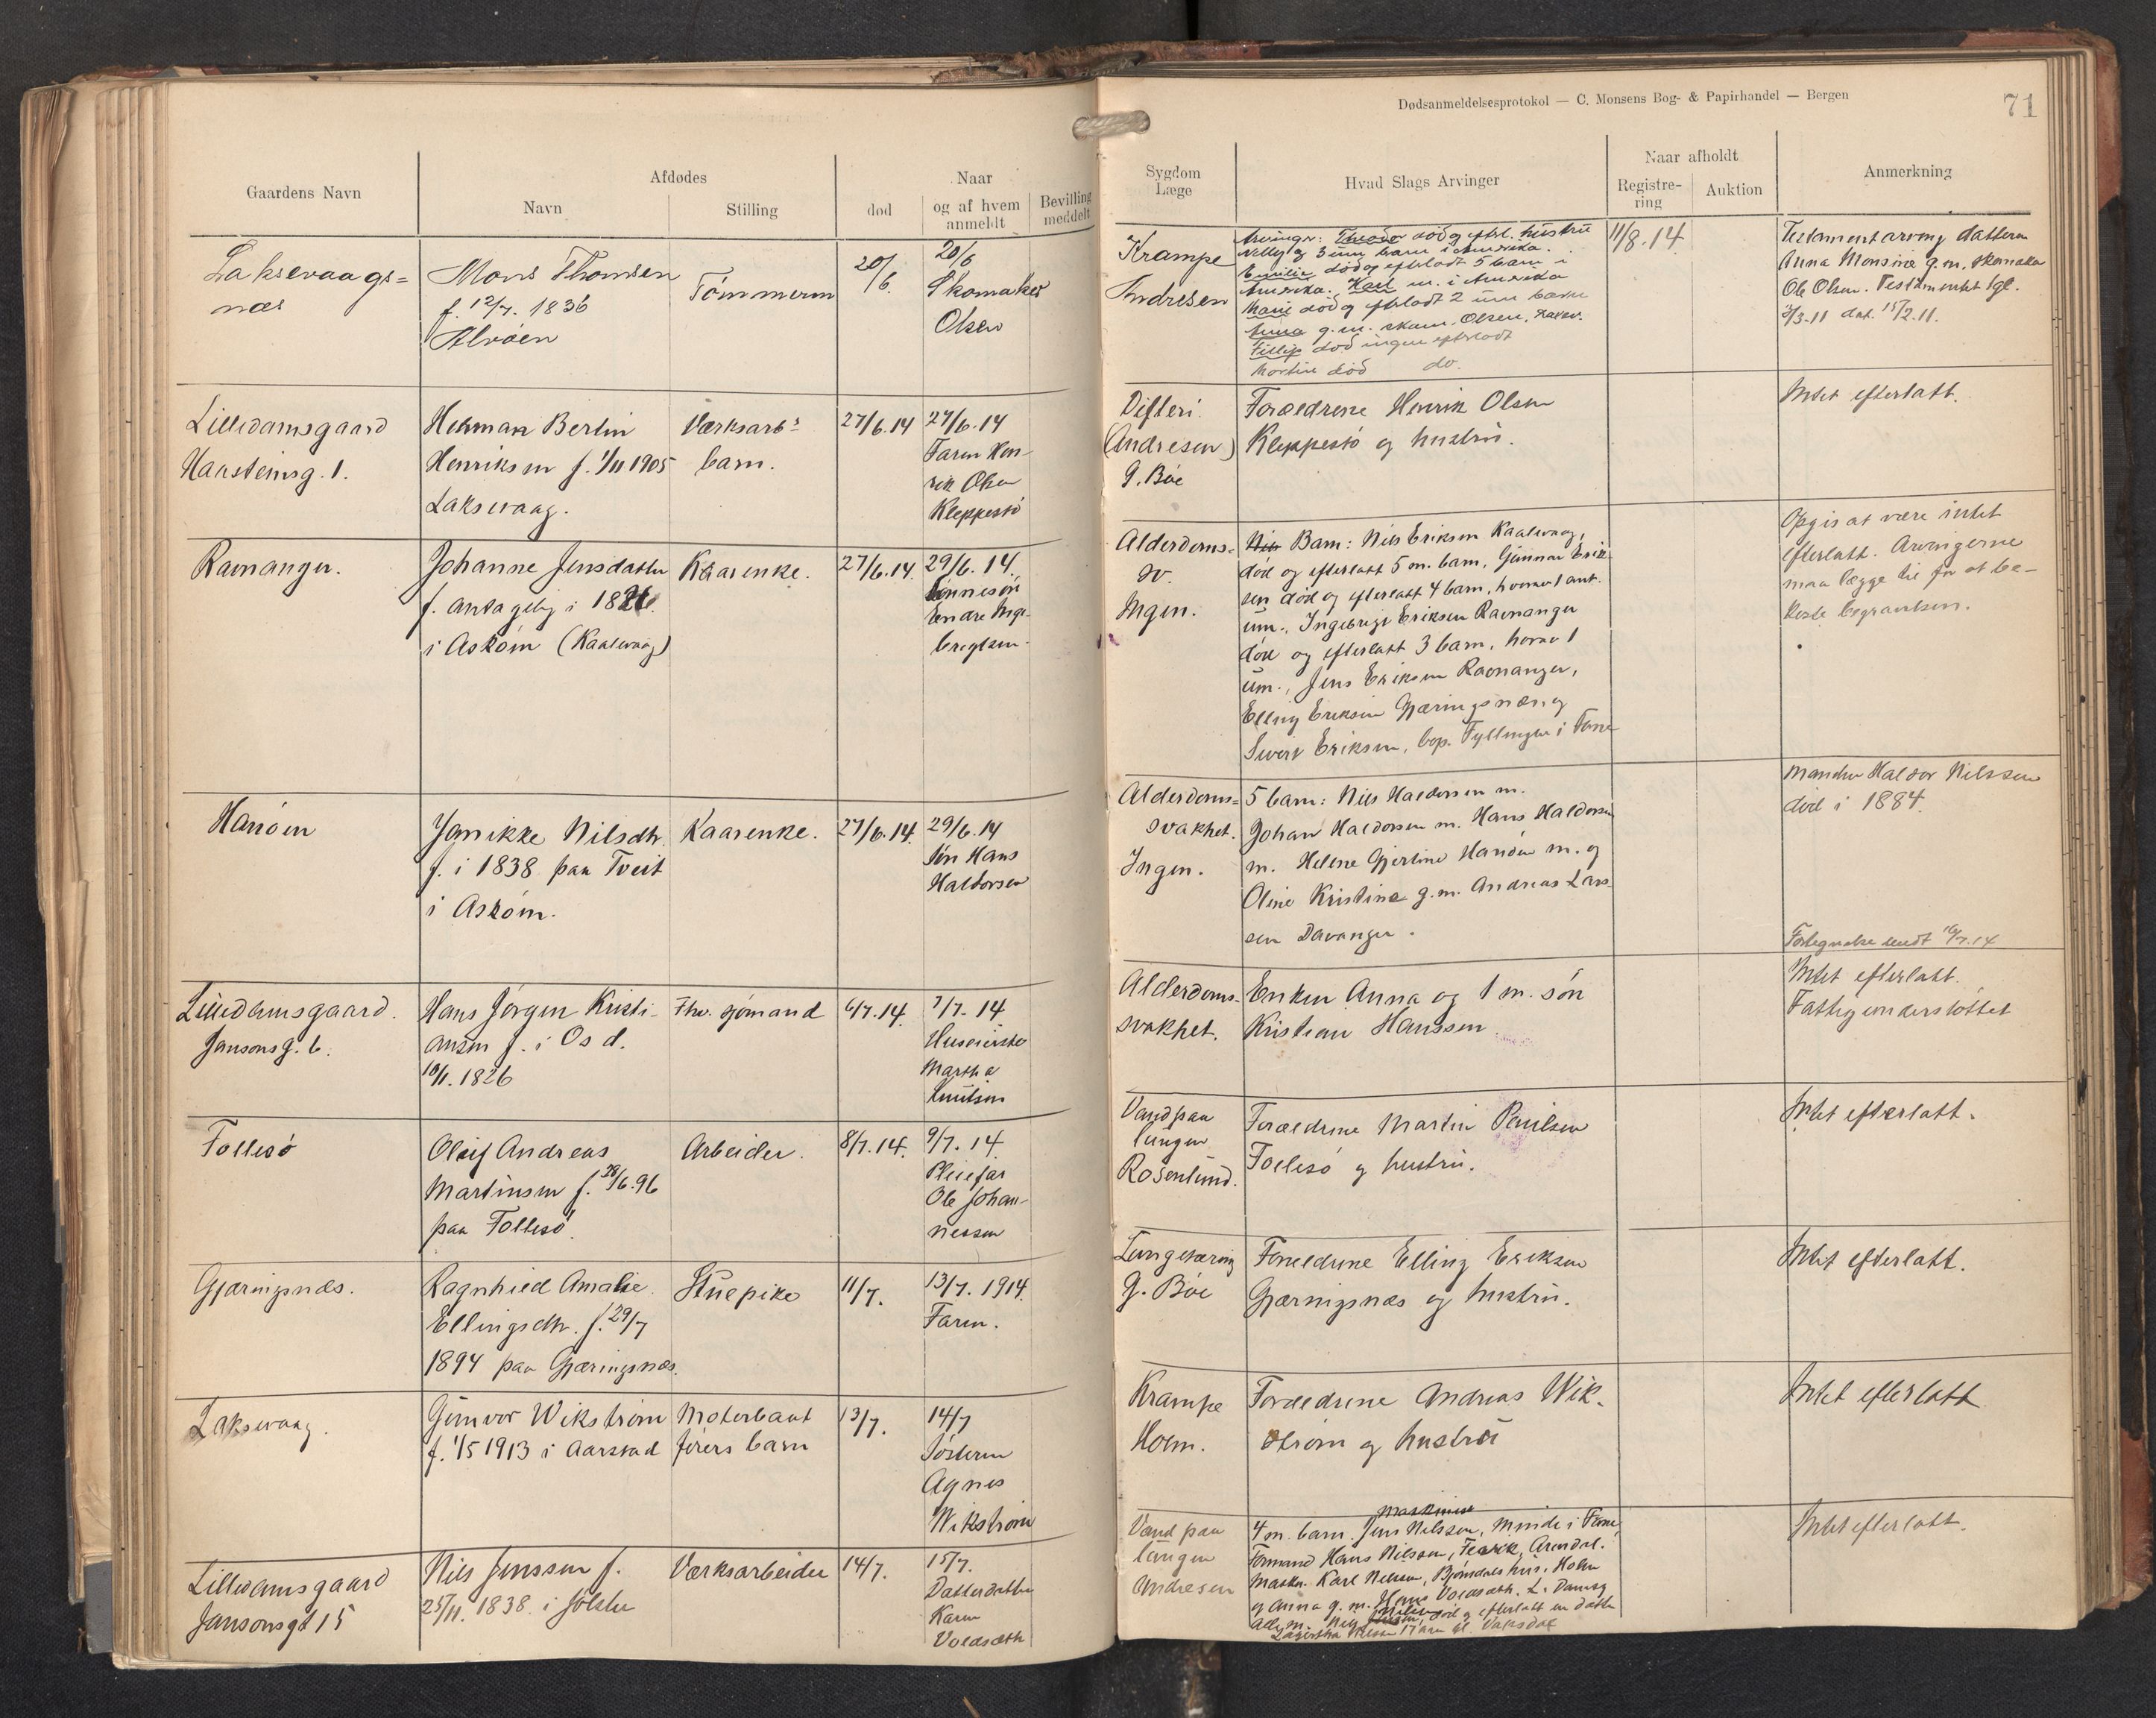 Gaardens Navn
Afdødes
Navn
Stilling
død
Naar
og af hvem
anmeldt
Bevilling
meddelt
Laksevaags=
næs
Mons Thomsen
f. 12/7. 1836
Alvøen
Tømmerm
20/
/6.
20/6
Skomaker
Olsen
Lilledamsgaard
Haasteinsg. 1.
Herman Bertin
Henriksen f. 1/11 1905
Laksevaag.
Værksarb.s
barn.
27/6.14
27/6.14
Faren Hen-
rik Olsen
Kleppestø
Ravnanger.
Johanne Jensdatter
f. antagelig i 1826.
i Askøen (Kaalvaag)
Kaarenke.
27/6.14.
29/6.14.
Sønnesøn
Endre Inge-
brigtsen.
Hanøen
Janikke Nilsdtr.
f. i 1838 paa Tveit
i Askøen.
Kaarenke.
27/6.14.
29/6.14
Søn Hans
Haldorsen
Lilledamsgaard.
Jansonsg. 6.
Hans Jørgen Kristi-
ansen f. i Os d.
10/11. 1826
Fhv. sjømand
6/7.14.
7/7.14
Huseierske
Martha
Knutsen
Follesø
Oluf Andreas
Martinsen f. 28/6.96
paa Follesø.
Arbeider.
8/7.14.
9/7.14.
Pleiefar
Ole Johan-
nessen
Gjæringsnæs.
Ragnhild Amalie
Ellingsdtr. f. 29/7
1894 paa Gjæringsnæs.
Stuepike
11/7.
13/7. 1914.
Faren.
Laksevaag.
Gunvor Wikstrøm
f. 1/5 1913 i Aarstad
Motorbaat
førers barn
13/7.
14/7
Søsteren
Agnes
Wikstrøm
Lilledamsgaard
Jansonsgt 15
Nils Jenssen f.
25/11. 1838. i Jølster
Værksarbeider
14/7.
15/7.
Datterdatter
Karen
Voldsæth
Dødsanmeldelsesprotokol — C. Monsens Bog- & Papirhandel — Bergen
71
Sygdom
Læge
Hvad Slags Arvinger
Naar afholdt
Registre-
ring
Auktion
Anmerkning
Krampe
Andresen
Arvinger: Theodor død og efterl. hustru
Nelly og 3 um. barn i Amerika.
Emilie død og efterladt 5 barn i
Amerika. Karl m. i Amerika
Marie død og efterladt 2 um barn
Anna g.m. skom. Olsen, Laksv.
Fillip død ingen efterladt
Martin død do.
11/8.14
Testamentarving datteren
Anna Monsine g.m. skomaker
Ole Olsen. Testamentet tgl.
2/3-11 dat. 15/2.11.
Difteri.
(Andresen)
G. Bøe
Forældrene Henrik Olsen
Kleppestø og hustru.
Intet efterlatt.
Alderdoms=
sv.
Ingen.
Nils Barn: Nils Eriksen Kaalvaag,
død og efterlatt 5 m. barn, Gunnar Erik
sen død og efterlatt 4 barn, hvorav 1 ant.
um., Ingebrigt Eriksen Ravnanger
død og efterlatt 3 barn, hvorav 1
um., Jens Eriksen Ravnanger,
Elling Eriksen Gjæringsnæs og
Sivert Eriksen, bop. Fyllingen i Fane
Opgis at være intet
efterlatt. Arvingerne
maa lægge til for at be-
koste begravelsen.
Alderdoms=
svakhet.
Ingen.
5 barn: Nils Haldorsen m.
Johan Haldorsen m. Hans Haldorsen
m. Helene Gjertine Hanøen m. og
Oline Kristine g.m. Andreas Lars-
sen Davanger.
Manden Haldor Nilssen
død i 1884.
Fortegnelse sendt 16/7.14
Alderdoms-
svakhet.
Enken Anna og 1 m. søn
Kristian Hanssen
Intet efterlatt.
Fattigunderstøttet
Vand paa
lungen
Rosenlund.
Forældrene Martin Paulsen
Follesø og hustru.
Intet efterlatt.
Lungetæring
G. Bøe
Forældrene Elling Eriksen
Gjæringsnæs og hustru.
Intet efterlatt.
Krampe
Holm.
Forældrene Andreas Wik-
strøm og hustru
Intet efterlatt
Vand paa
lungen
Andresen
Maskinist
4 m. barn. Jens Nilssen, Minde i Fane,
Formand Hans Nilssen, Arendal.
Maskn. Karl Nilssen, Bjøndals hus, Holm
og Anna g.m. Voldsæth. L. Damsg
død og efterlatt en datter
Nilssen 17 aar Vaksdal
Intet efterlatt.